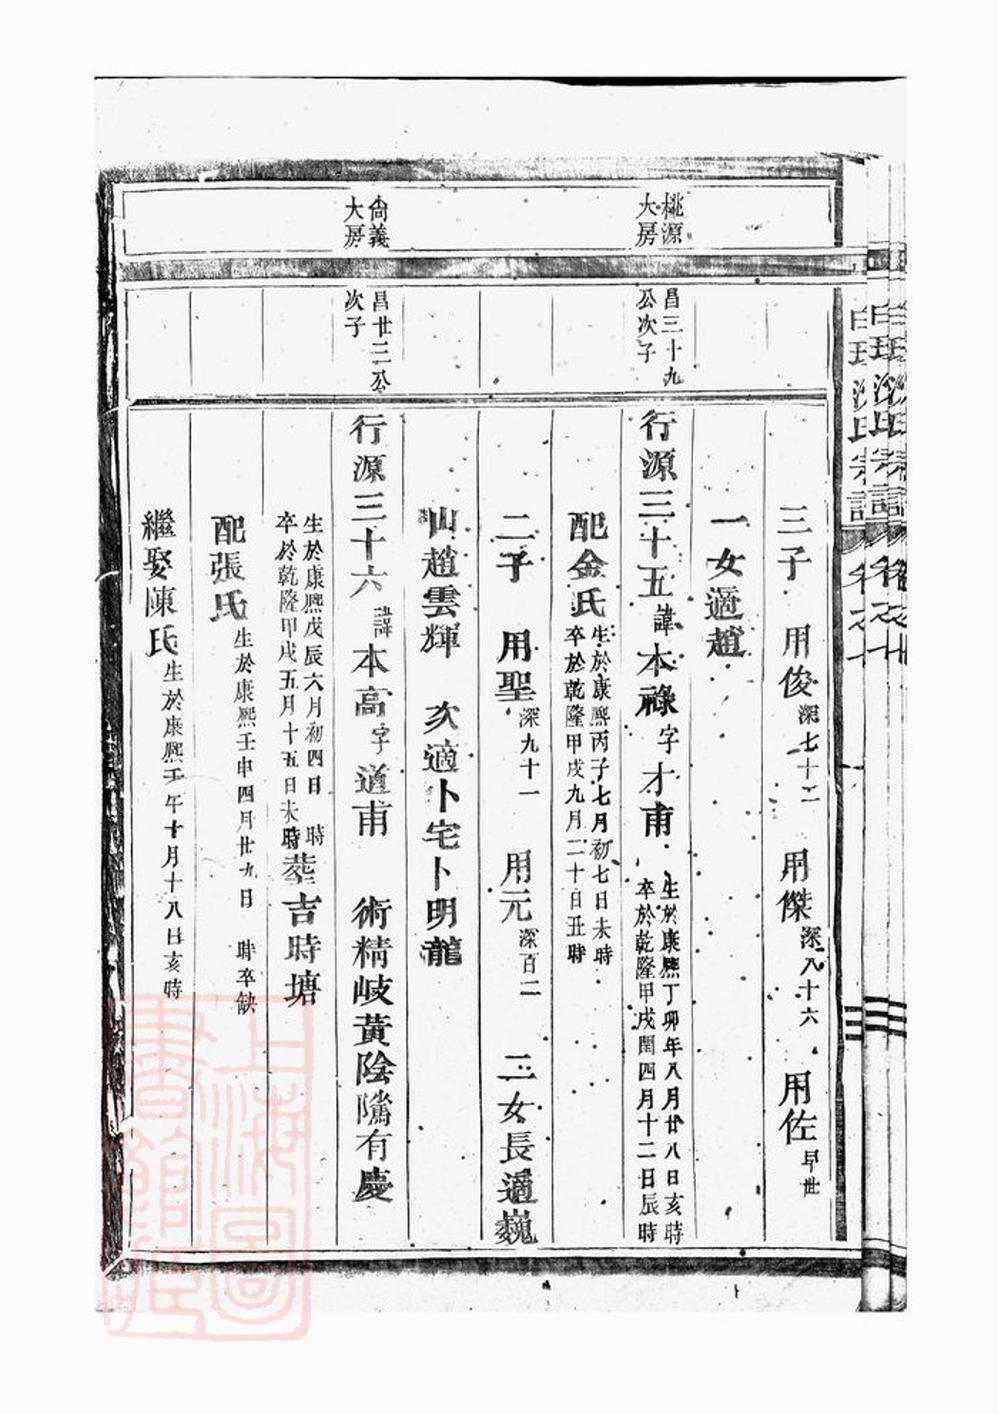 三子 用俊深七十二 用傑深八十六 用佐早世
一女適趙
桃源大房
昌三十九公次子
行源三十五諱本祿字才甫 生於康熙丁卯年八月廿八日亥時卒於乾隆甲戌閏四月十二日辰時
配金氏生於康熙丙子七月初七日未時卒於乾隆甲戌九月二十日丑時
二子 用聖深九十一 用元深百二 二女長適巍
山趙雲輝 次適卜宅卜明龍
尚義大房
昌廿三公次子
行源三十六諱本高字道甫 術精岐黃陰隲有慶
生於康熙戊辰六月初四日 時卒於乾隆甲戌五月十五日未時塟吉時塘
配張氏生於康熙壬申四月廿九日 時卒缺
繼娶陳氏生於康熙壬午十月十八日亥時
上海圖書館藏